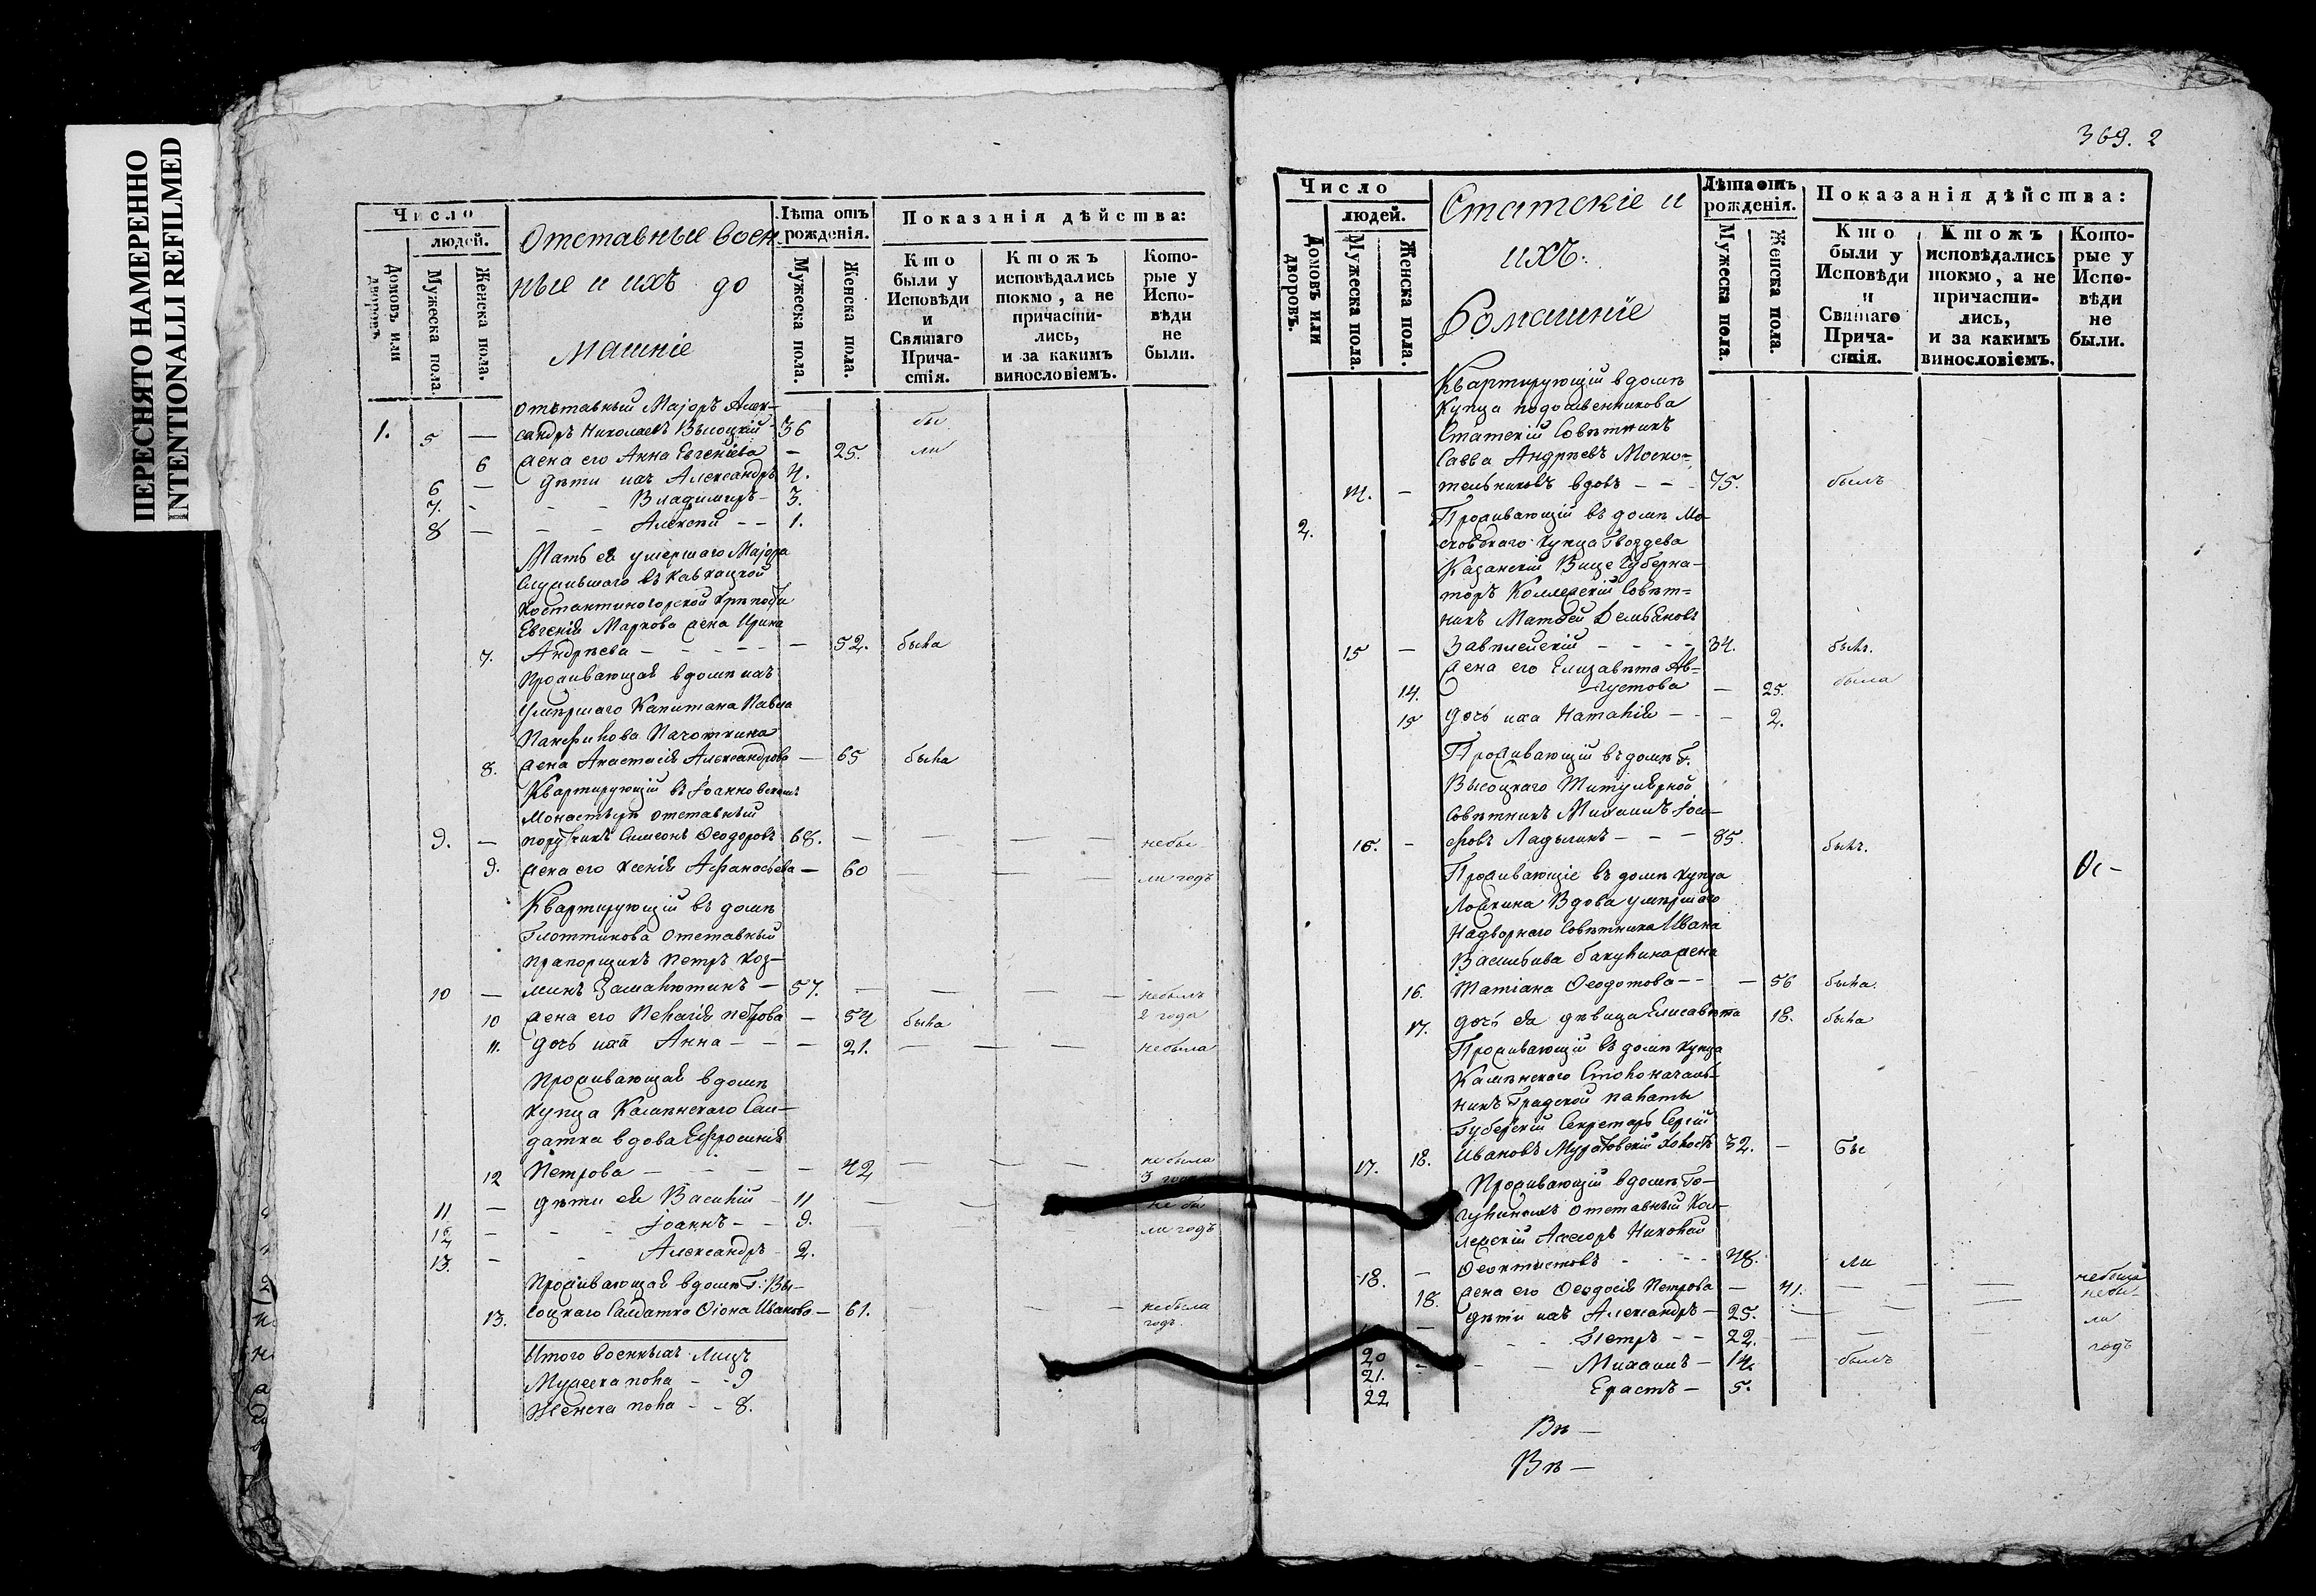 ПЕРЕСНЯТО НАМЕРЕННО
INTENTIONALLI REFILMED
Число
людей.
Домовъ или дворовъ.
Мужеска пола.
Женска пола.
Отставные воен
ные и ихъ до
машніе
Лѣта отъ рожденія.
Мужеска пола.
Женска пола.
Показанія дѣйства:
Кто были у Исповѣди и Святаго Прича-стія.
Ктожъ исповѣдались токмо, а не причасти-лись, и за какимъ винословіемъ.
Кото-рые у Испо-вѣди не были.
Отставный Маjоръ Алек-
1. 5 — сандръ Николаевъ Высоцкій 36 бы
6 жена его Анна Евгеніева — 25. ли
6 — дѣти ихъ Александръ 4.
7. - - - Владимиръ - 3.
8 — - - Алексѣй - - 1.
Мать ея умершаго Маjора
Служившаго въ Кавказкой
Костантиногорской крѣпости
Евгенія Маркова жена Ирина
7. Андрѣева - - - - - — 52. была
Проживающая в домѣ ихъ
Умѣршаго Капитана Павла
8. жена Анастасія Александрова — 65 была
Квартирующій въ Iоанновскомъ
Монастырѣ отставный
9. — порутчикъ Симеонъ Ѳеодоровъ 68. — — — — небы
9. жена его Ксенія Афанасьева — 60 — — — ли годъ
Квартирующій въ домѣ
Плоттникова отставный
прапорщикъ Петръ Коз-
10 — минъ Замаютинъ — 57. — — — — небылъ
2 года
10 жена его Пелагія Петрова — 54 была
11. дочь ихъ Анна - - — 21. — — — небыла
Проживающая в домѣ
купца Каменскаго Сал-
датка вдова Ефросинія
12 Петрова — - - - — 42 — — — не была
3 года
11 — дѣти ея Василій - 11 — — — не бы
12 — - - Iоаннъ - - 9. — ли годъ
13. - - Александръ - 2.
Проживающая в домѣ Г: Вы-
13. соцкаго Салдатка Ѳіона Иванова — 61. — — — небыла
годъ.
Итого военныхъ Лицъ
Мужеска пола - - 9
Женска пола - - 8.
369. 2
Число
людей.
Домовъ или дворовъ.
Мужеска пола.
Женска пола.
Статскіе и
ихъ
Домашніе
Лѣта отъ рожденія.
Мужеска пола.
Женска пола.
Показанія дѣйства:
Кто были у Исповѣди и Святаго Прича-стія.
Ктожъ исповѣдались токмо, а не причасти-лись, и за какимъ винословіемъ.
Кото-рые у Испо-вѣди не были.
Квартирующій в домѣ
Купца подошвенникова
Статскій Совѣтникъ
Савва Андрѣевъ Моско-
14. — тельниковъ вдовъ - - - 75. былъ
Проживающій въ домѣ Мо-
2. сковскаго купца Гвоздева
Казанскій Вице Губерна-
торъ Коллежскій Совѣт-
никъ Матвѣй Демьяновъ
15 — Завилейскій - - - - 34. былъ.
жена его Елизавѣта Ав-
14. густова — 25. была
15 дочь ихъ Наталія - - — 2.
Проживающій въ домѣ Г.
Высоцкаго Титулярной
Совѣтникъ Михаилъ Iоси-
16. - фовъ Ладыгинъ - - — 85. былъ.
Проживающіе въ домѣ купца
Вдова умѣршаго
Надворнаго Совѣтника Ивана
Васильева жена
16. Татіана Ѳеодотова - - — 56 была.
17. дочь ея дѣвица Елисавѣта 18. была
Проживающій въ домѣ купца
Каменскаго Столоначаль-
никъ Градской палаты
Губерскій Секретарь Сергій
17. 18. Ивановъ Муратовскій холостъ 32. — бы
Проживающій в домѣ
отставный Кол-
лежскій Асесоръ Николай
18. — Ѳеоктистовъ - - - 48. ли
18. жена его Ѳеодосія Петрова — 41. — — — небыла
— дѣти ихъ Александръ - 25. — — — небы
20 - - Петръ - - 22. — — ли
21. - - - Михаилъ - 14. былъ годъ
22 Ерастъ - 5.
Вп —
Вп —